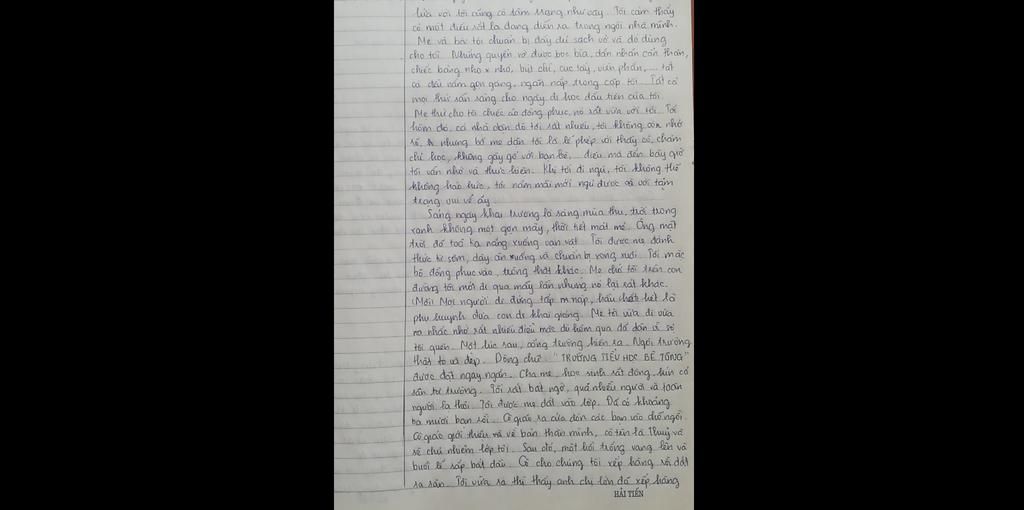 lứa với tôi cũng có tâm trạng như vậy. Tôi cảm thấy
có một điều rất lạ đang diễn ra trong ngôi nhà mình.
Mẹ và bà tôi chuẩn bị đầy đủ sách vở và đồ dùng
cho tôi. Những quyển vở được bọc bìa, dán nhãn cẩn thận,
chiếc bảng nho nhỏ, bút chì, cục tẩy, viên phấn,... tất
cả đều nằm gọn gàng, ngăn nắp trong cặp tôi. Tất cả
mọi thứ sẵn sàng cho ngày đi học đầu tiên của tôi.
Mẹ thử cho tôi chiếc áo đồng phục, nó rất vừa với tôi. Tối
hôm đó, cả nhà dặn dò tôi rất nhiều, tôi không còn nhớ
rõ, nhưng bố mẹ dặn tôi là lễ phép với thầy cô, chăm
chỉ học, không gây gổ với bạn bè, điều mà đến bây giờ
tôi vẫn nhớ và thực hiện. Khi tôi đi ngủ, tôi không thể
không háo hức, tôi nằm mãi mới ngủ được với tâm
trạng vui vẻ ấy.
Sáng ngày khai trường là sáng mùa thu, trời trong
xanh không một gợn mây, thời tiết mát mẻ. Ông mặt
trời đã toả tia nắng xuống vạn vật. Tôi được mẹ đánh
thức từ sớm, dậy ăn xuống và chuẩn bị xong xuôi. Tôi mặc
bộ đồng phục vào, trông thật khác. Mẹ chở tôi trên con
đường tôi mới đi qua mấy lần nhưng nó lại rất khác.
(Mới) Mọi người đi đứng tấp nập, hầu hết là
phụ huynh đưa con đi khai giảng. Mẹ tôi vừa đi vừa
nhắc nhở rất nhiều điều mặc dù hôm qua đã dặn vì sợ
tôi quên. Một lúc sau, cổng trường hiện ra. Ngôi trường
thật to và đẹp. Dòng chữ: "TRƯỜNG TIỂU HỌC ĐỀ TỐNG"
được đặt ngay ngắn. Cha mẹ, học sinh rất đông, kín cả
sân từ trường. Tôi rất bất ngờ, quá nhiều người và toàn
người lạ thôi. Tôi được mẹ dắt vào lớp. Đã có khoảng
ba mươi bạn rồi. Cô giáo ra cửa đón các bạn vào chỗ ngồi.
Cô giáo giới thiệu về bản thân mình, cô tên là Thuỷ và
sẽ chủ nhiệm lớp tôi. Sau đó, một hồi trống vang lên và
buổi lễ sắp bắt đầu. Cô cho chúng tôi xếp hàng rồi dắt
ra sân. Tôi vừa ra thì thấy anh chị lớn đã xếp hàng
HẢI TIẾN